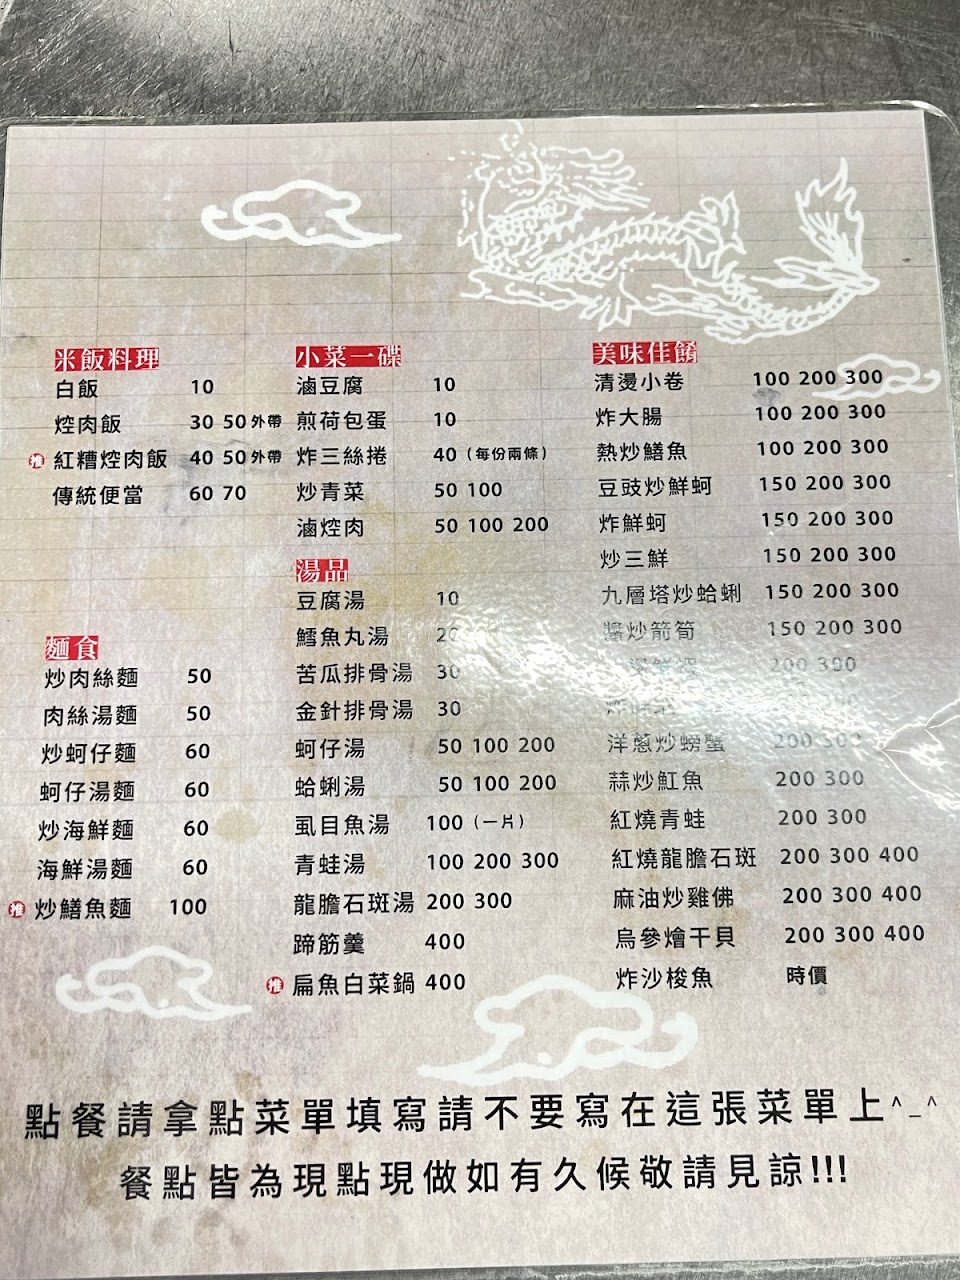 米飯料理
白飯 10
焢肉飯 30 50 外帶
推 紅糟焢肉飯 40 50 外帶
傳統便當 60 70
麵食
炒肉絲麵 50
肉絲湯麵 50
炒蚵仔麵 60
蚵仔湯麵 60
炒海鮮麵 60
海鮮湯麵 60
推 炒鱔魚麵 100
小菜一碟
滷豆腐 10
煎荷包蛋 10
炸三絲捲 40 (每份兩條)
炒青菜 50 100
滷焢肉 50 100 200
湯品
豆腐湯 10
鱈魚丸湯 20
苦瓜排骨湯 30
金針排骨湯 30
蚵仔湯 50 100 200
蛤蜊湯 50 100 200
虱目魚湯 100 (一片)
青蛙湯 100 200 300
龍膽石斑湯 200 300
蹄筋羹 400
推 扁魚白菜鍋 400
美味佳餚
清燙小卷 100 200 300
炸大腸 100 200 300
熱炒鱔魚 100 200 300
豆豉炒鮮蚵 150 200 300
炸鮮蚵 150 200 300
炒三鮮 150 200 300
九層塔炒蛤蜊 150 200 300
醬炒箭筍 150 200 300
200 300
洋蔥炒螃蟹 200 300
蒜炒魟魚 200 300
紅燒青蛙 200 300
紅燒龍膽石斑 200 300 400
麻油炒雞佛 200 300 400
烏參燴干貝 200 300 400
炸沙梭魚 時價
點餐請拿點菜單填寫請不要寫在這張菜單上^_^
餐點皆為現點現做如有久候敬請見諒!!!